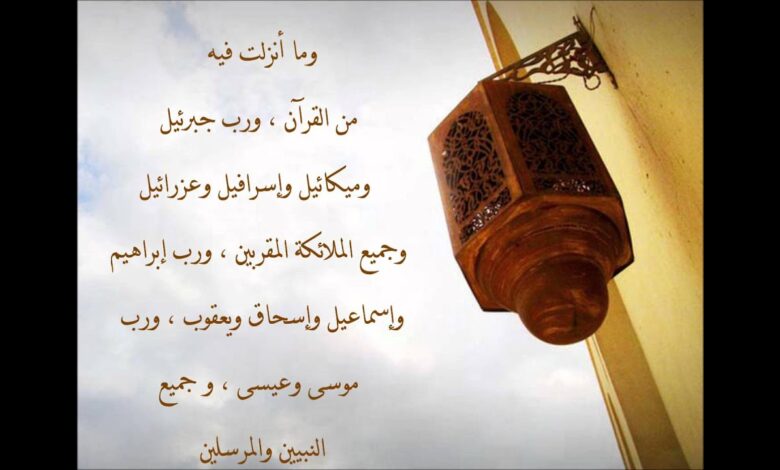 وما أنزلت فيه
من القرآن ، ورب جبرئيل
وميكائيل وإسرافيل وعزرائيل
وجميع الملائكة المقربين ، ورب إبراهيم
وإسماعيل وإسحاق ويعقوب ، ورب
موسى وعيسى ، و جميع
النبيين والمرسلين